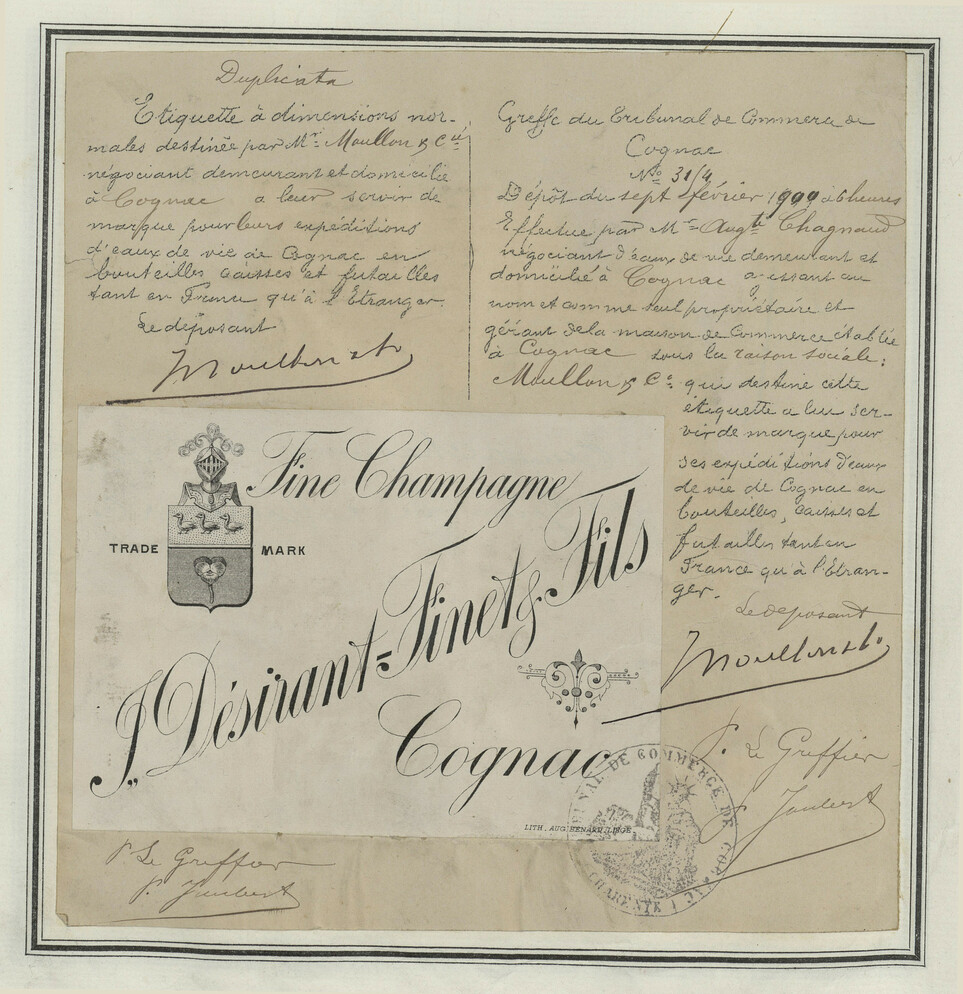 Duplicata
Etiquette à dimensions nor-
males destinée par Mr. Moullon & Cie
négociant demeurant et domicilié
à Cognac a leur servir de
marque pour leurs expéditions
d'eaux de vie de Cognac en
bouteilles caisses et futailles
tant en France qu'à l'Etranger.
Le déposant
Moullon & Co
Greffe du Tribunal de Commerce de
Cognac
No 31/4
Dépôt du sept février à 6 heures
Effectué par Mr Augte Chagnaud
négociant d'eaux de vie demeurant et
domicilié à Cognac agissant au
nom et comme seul propriétaire et
gérant de la maison de Commerce établie
à Cognac sous la raison sociale:
Moullon & Co. qui destine cette
étiquette a lui ser-
vir de marque pour
ses expéditions d'eaux
de vie de Cognac en
bouteilles, caisses et
futailles tant en
France qu'à l'Etran-
ger.
Le déposant
Moullon & Co
Fine Champagne
TRADE MARK
J. Désirant-Finet & Fils
Cognac
LITH. AUG. BENARD, LIEGE
P. Le Greffier
Joubert
P. Le Greffier
P. Joubert
TRIBUNAL DE COMMERCE DE COGNAC
CHARENTE